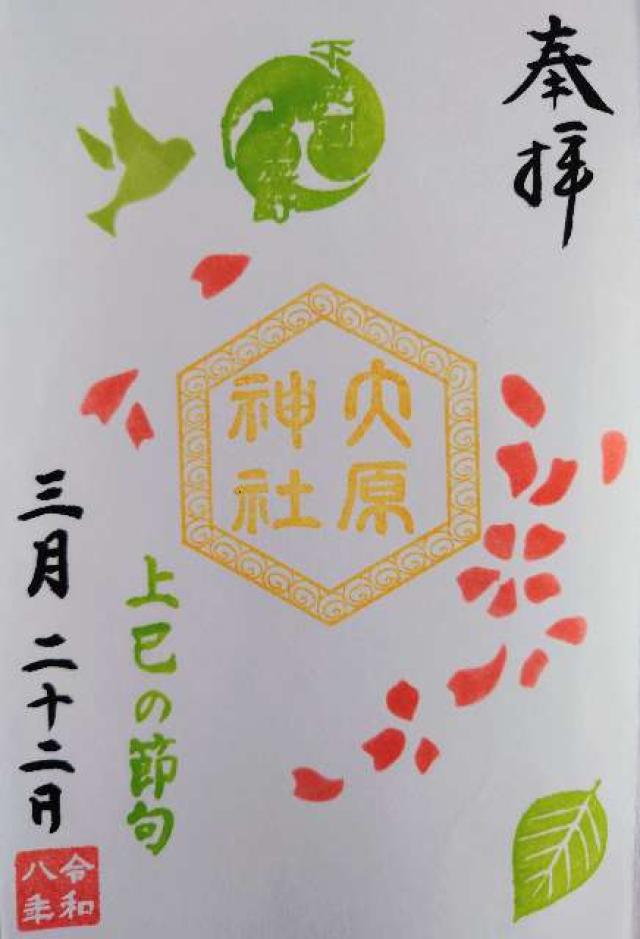 奉拝
大原
神社
上巳の節句
三月二十二日
令和
八年